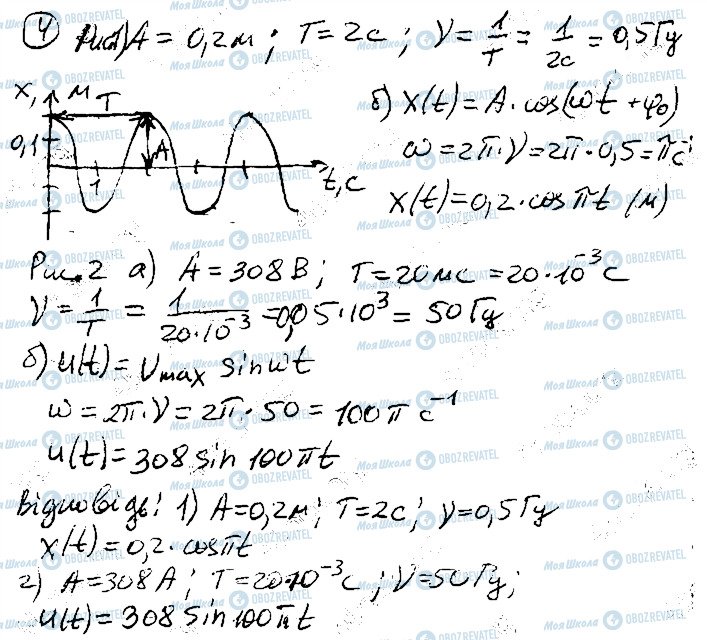 4 Рис.1) A = 0,2 м; T = 2 c; ν = 1/T = 1/2c = 0,5 Гц
x, м
T
0,1
A
1
t, c
б) x(t) = A·cos(ωt + φ₀)
ω = 2π·ν = 2π·0,5 = π c⁻¹
x(t) = 0,2·cos πt (м)
Рис. 2 а) A = 308 В; T = 20 мс = 20·10⁻³ c
ν = 1/T = 1/20·10⁻³ = 0,05·10³ = 50 Гц
б) u(t) = Umax sin ωt
ω = 2π·ν = 2π·50 = 100π c⁻¹
u(t) = 308 sin 100πt
Відповідь: 1) A = 0,2 м; T = 2 c; ν = 0,5 Гц
x(t) = 0,2·cos πt
2) A = 308 A; T = 20·10⁻³ c; ν = 50 Гц;
u(t) = 308 sin 100πt
Моя Школа OBOZREVATEL